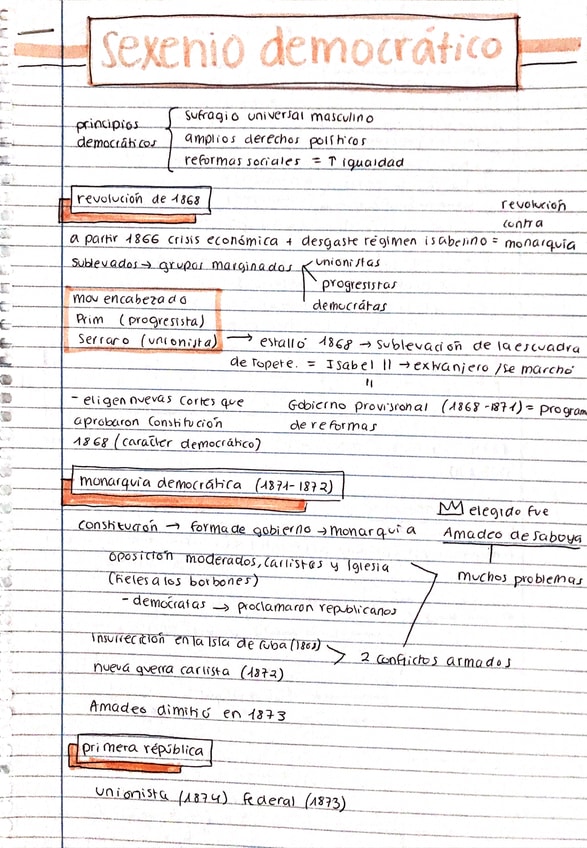 sexenio democrático
principios democráticos
sufragio universal masculino
amplios derechos políticos
reformas sociales = ↑ igualdad
revolución de 1868
revolución contra
a partir 1866 crisis económica + desgaste régimen isabelino = monarquía
sublevados → grupos marginados
unionistas
progresistas
demócratas
mov encabezado
Prim (progresista)
Serraro (unionista) → estalló 1868 → sublevación de la escuadra
de Topete. = Isabel II → extranjero /se marchó
=
- eligen nuevas cortes que
aprobaron Constitución
1868 (carácter democrático)
Gobierno provisional (1868-1871) = program
de reformas
monarquía democrática (1871-1872)
elegido fue
constitución → forma de gobierno → monarquía Amadeo de Saboya
muchos problemas
oposición moderados, carlistas y Iglesia
(fieles a los borbones)
- demócratas → proclamaron republicanos
insurrección en la Isla de Cuba (1868)
nueva guerra carlista (1872)
2 conflictos armados
Amadeo dimitió en 1873
primera républica
unionista (1874) federal (1873)